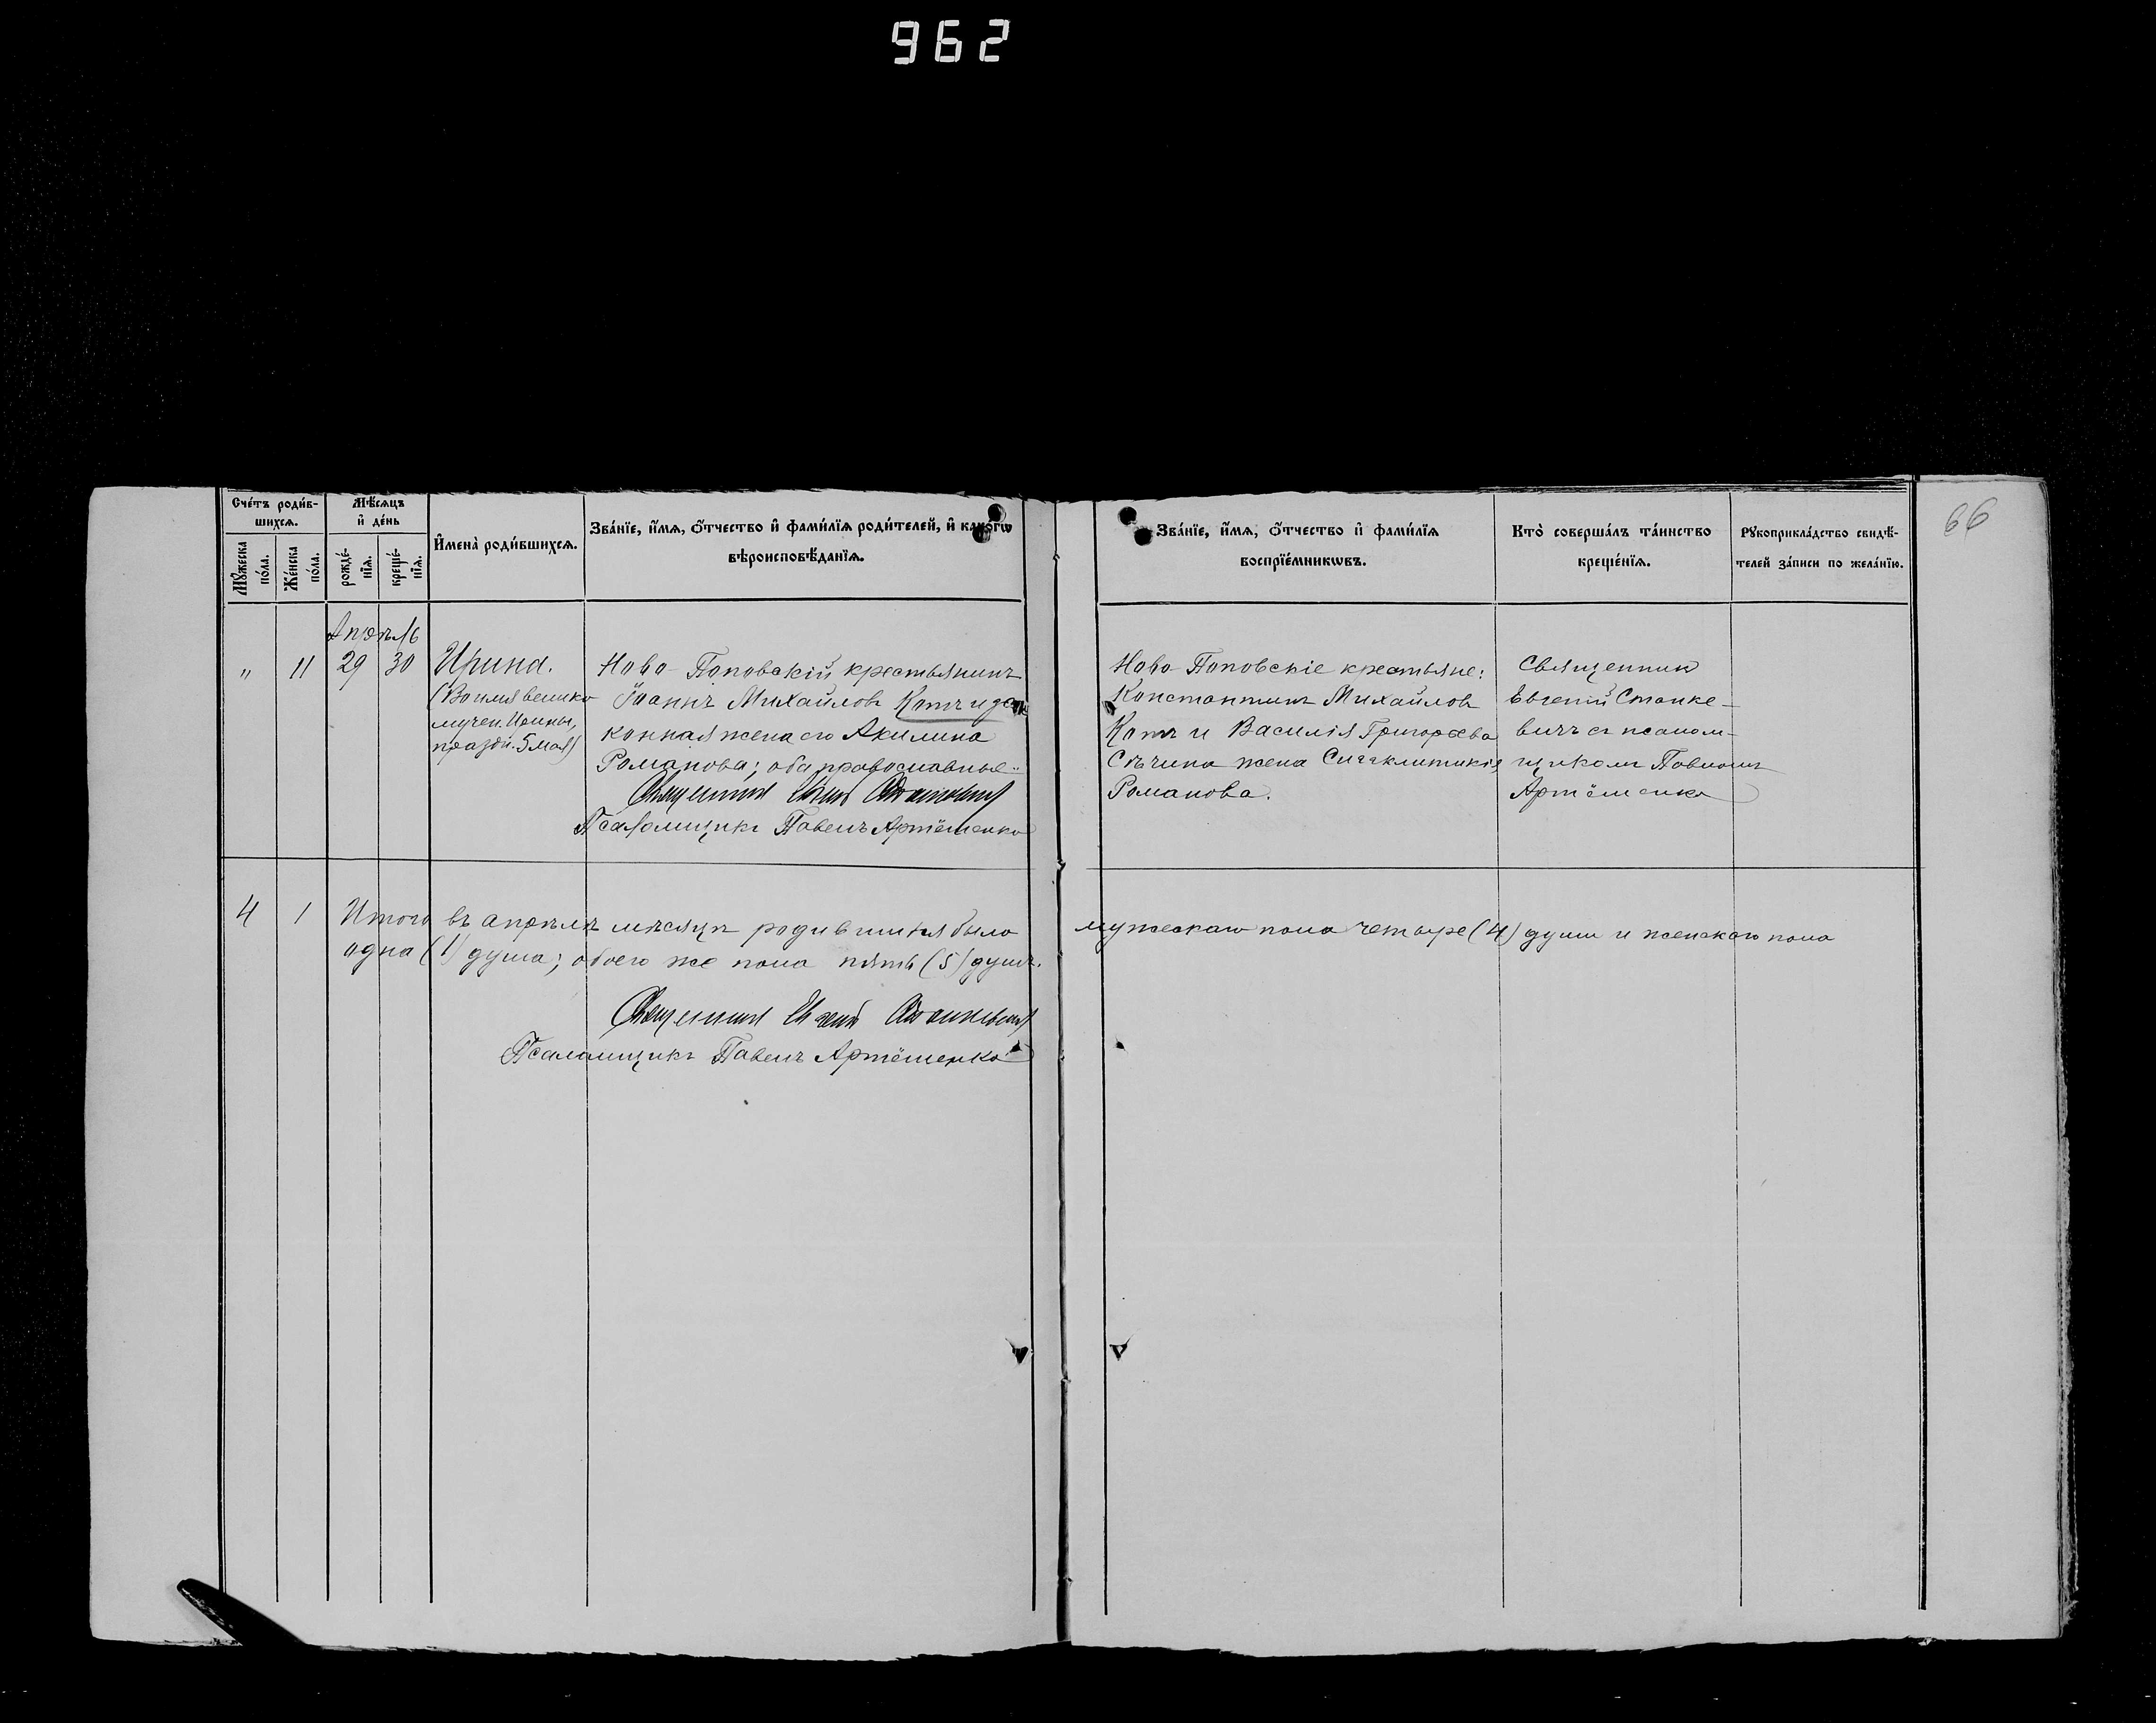 962
66
Сче́тъ роди́в-
шихсѧ.
Мꙋ́жеска
по́ла.
Же́нска
по́ла.
Мѣ́сѧцъ
и҆ де́нь
рожде́-
нїѧ.
креще́-
нїѧ.
И҆мена̀ роди́вшихсѧ.
Зва́нїе, и҆́мѧ, ѻ҆́тчество и҆ фами́лїѧ роди́телей, и҆ како́гѡ
вѣроисповѣ́данїѧ.
Зва́нїе, и҆́мѧ, ѻ҆́тчество и҆ фами́лїѧ
воспрїе́мникѡвъ.
Кто̀ соверша́лъ та́инство
креще́нїѧ.
Рꙋкоприкла́дство свидѣ́-
телей за́писи по жела́нїю.
Апрѣль
„ 11 29 30
Ирина.
(Во имя велико
мучен. Ирины,
праздн. 5 мая)
Ново-Поповскій крестьянинъ
Іоаннъ Михайловъ Котъ и за
конная жена его Акилина
Романова; оба православные.
Священникъ Евгеній Станкевичъ
Псаломщикъ Павелъ Артёменко
Ново-Поповскіе крестьяне:
Константинъ Михайловъ
Котъ и Василія Григорьева
Сѣчина жена Сигклитикія
Романова.
Священникъ
Евгеній Станке-
вичъ съ псалом-
щикомъ Павломъ
Артёменко
4 1 Итого въ апрѣлѣ мѣсяцѣ родившихся было мужескаго пола четыре (4) души и женскаго пола
одна (1) душа; обоего же пола пять (5) душъ.
Священникъ Евгеній Станкевичъ
Псаломщикъ Павелъ Артёменко